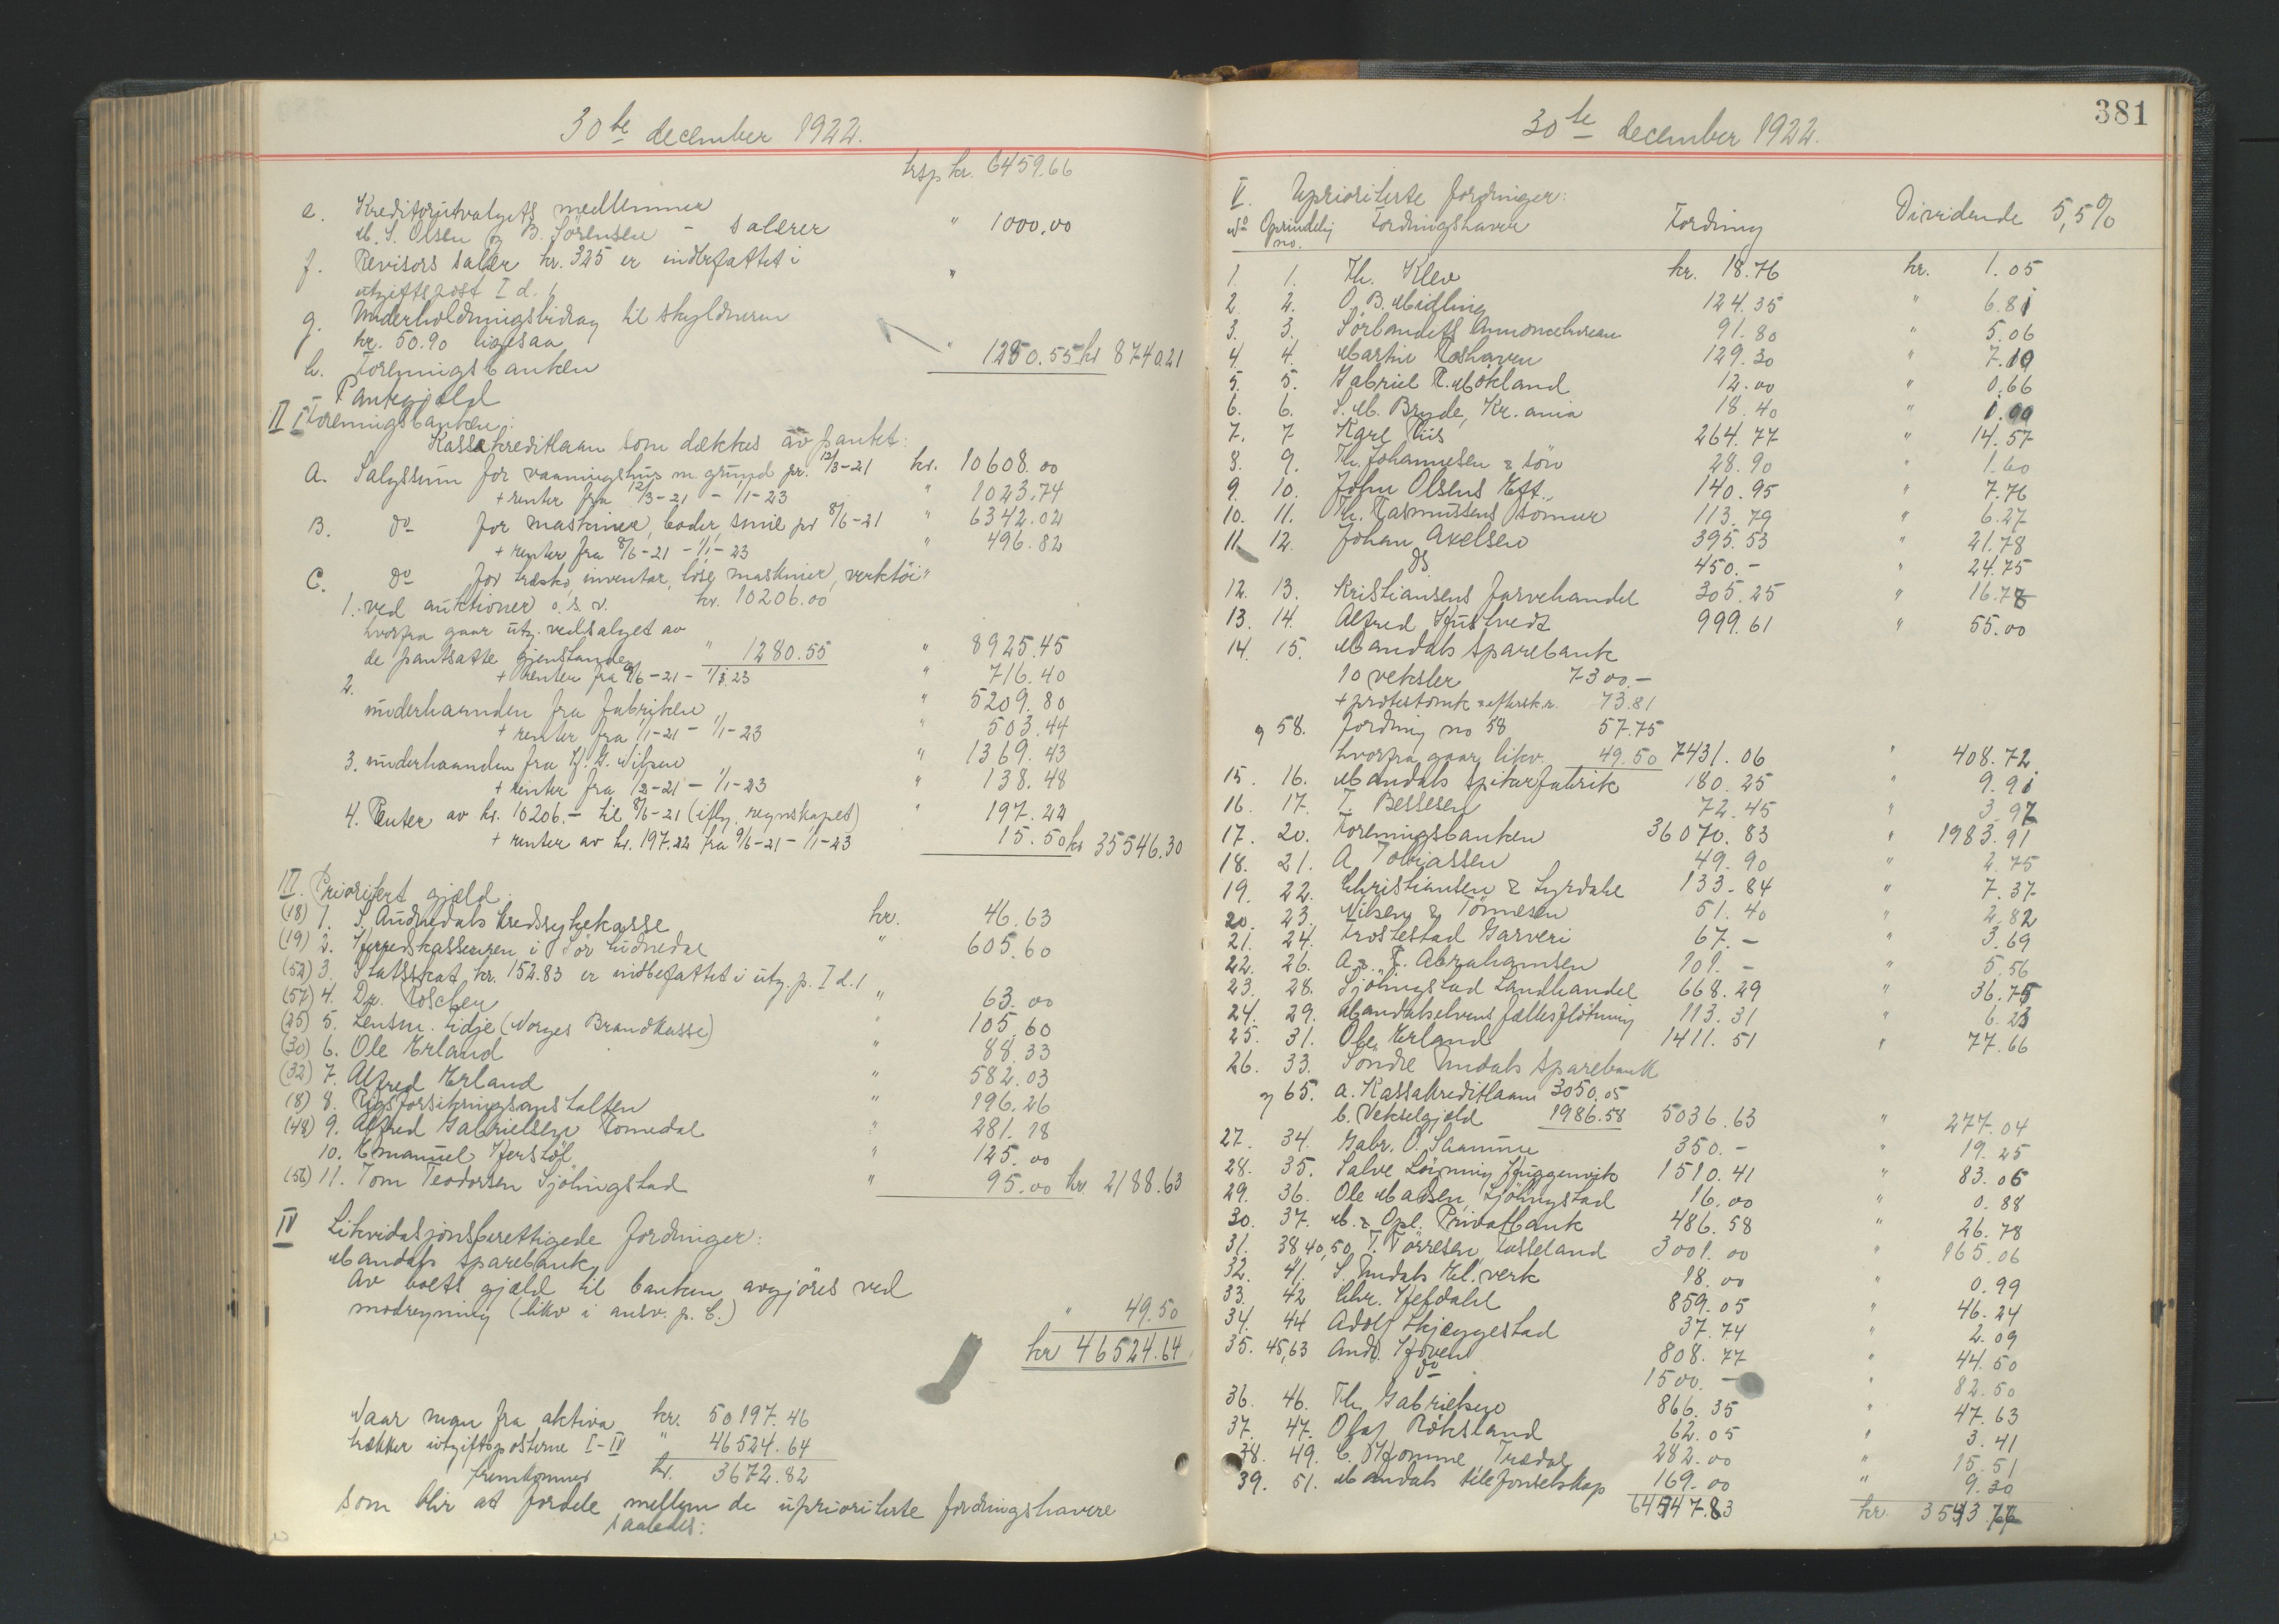 30te december 1922.
trsp kr. 6459.66
e. Kreditorutvalgets medlemmer
M. S. Olsen og B. Sörensen - salærer " 1000.00
f. Revisors salær kr. 325 er indbefattet i "
utgiftspost I d.
g. Underholdningsbidrag til skyldneren
kr. 50.90 ligesaa
h. Foreningsbanken " 1280.55 kr 8740.21
Pantegjæld
II I Foreningsbanken:
Kassakreditlaan som dækkes av pantet:
A. Salgssum for vaaningshus m. grund pr. 12/3-21 kr. 10608.00
+ renter fra 12/3-21 - 1/1-23 " 1023.74
B. do for maskiner, boder, smie pr 8/6-21 " 6342.02
+ renter fra 8/6-21 - 1/1-23 " 496.82
C. do for træsko, inventar, löse maskiner, verktöi "
1. ved auktioner o.s.v. kr. 10206.00
hvorfra gaar utg. ved salget av
de pantsatte gjenstande " 1280.55 " 8925.45
+ renter fra 8/6-21 - 1/1 23 " 716.40
2. underhaanden fra fabriken " 5209.80
+ renter fra 1/1-21 - 1/1-23 " 503.44
3. underhaanden fra H. G. Nilsen " 1369.43
+ renter fra 1/2-21 - 1/1-23 " 138.48
4. Renter av kr. 10206.- til 8/6-21 (iflg. regnskapet) " 197.22
+ renter av kr. 197.22 fra 9/6-21 - 1/1-23 15.50 kr 35546.30
III. Prioritert gjæld.
(18) 1. S. Audnedals kredssykekasse kr. 46.63
(19) 2. Herredskassereren i Sör Audnedal " 605.60
(52) 3. Statsskat kr. 152.83 er indbefattet i utg. p. I d.1
(57) 4. Dr. Roscher " 63.00
(25) 5. Lensm. Lidje (Norges Brandkasse) " 105.60
(30) 6. Ole Erland " 88.33
(32) 7. Alfred Erland " 582.03
(8) 8. Rigsforsikringsanstalten " 196.26
(48) 9. Alfred Gabrielsen Tomedal " 281.18
10. Emanuel Herstöl " 125.00
(56) 11. Tom Teodorsen Sjölingstad " 95.00 kr. 2188.63
IV Likvidasjonsberettigede fordringer:
Mandals sparebank
Av boets gjæld til banken avgjöres ved
modregning (likv i ansv. p. C.) " 49.50
kr 46524.64
Naar man fra aktiva kr. 50197.46
trækker utgiftsposterne I-IV " 46524.64
fremkommer kr. 3672.82
som blir at fordele mellem de uprioriterte fordringshavere
saaledes:
381
30te december 1922.
V. Uprioriterte fordringer:
No Oprindelig no. Fordringshaver Fordring Dividende 5,5%
1. 1. Th. Klev kr. 18.76 kr. 1.05
2 2. O. B. Midling 124.35 " 6.81
3. 3. Sörlandets Annoncebureau 91.80 " 5.06
4. 4. Martin Roshaven 129.30 " 7.10
5. 5. Gabriel R. Mökland 12.00 " 0.66
6. 6. S. M. Bryde, Kr.ania 18.40 "
7. 7 Karl Riis 264.77 " 14.57
8. 9. Th. Johannesen & sön 28.90 " 1.60
9. 10. John Olsens Eft. 140.95 " 7.76
10. 11. Th. Rasmussens sönner 113.79 " 6.27
11. 12. Johan Axelsen 395.53 " 21.78
do 450.- " 24.75
12. 13. Kristiansens farvehandel 305.25 " 16.78
13. 14. Alfred Kjustvedt 999.61 " 55.00
14. 15. Mandals sparebank
10 veksler 7300.-
+ protestomk & eftersk.r. 73.81
og 58. fordring no 58 57.75
hvorfra gaar likv. 49.50 7431.06 " 408.72
15. 16. Mandals spikerfabrik 180.25 " 9.91
16. 17. T. Bessesen 72.45 " 3.97
17. 20. Foreningsbanken 36070.83 " 1983.91
18. 21. A. Tobiassen 49.90 " 2.75
19. 22. Christiansen & Lyrdahl 133.84 " 7.37
20. 23. Nilsen & Tönnesen 51.40 " 2.82
21. 24. Trostestad Garveri 67.- " 3.69
22. 26. A. R. Abrahamsen 101.- " 5.56
23. 28. Sjölingstad Landhandel 668.29 " 36.75
24. 29. Mandalselvens fællesflötning 113.31 " 6.23
25. 31. Ole Erland 1411.51 " 77.66
26. 33. Söndre Undals sparebank
og 65. a. Kassakreditlaan 3050.05
b. Vekselgjæld 1986.58 5036.63 " 277.04
27. 34. Gabr. O. Skamme 350.- " 19.25
28. 35. Salve Löining, Huggenvik 1510.41 " 83.06
29. 36. Ole Madsen, Sjölingstad 16.00 " 0.88
30. 37. M. & Opl. Privatbank 486.58 " 26.78
31. 38 40, 50, T. Törresen, Tusseland 3001.00 " 165.06
32. 41. S. Undals El. verk 18.00 " 0.99
33. 42 Chr. Hefdahl 859.05 " 46.24
34. 44 Adolf Skjæggestad 37.74 " 2.09
35. 45,63 Andr. Hoven 808.77 " 44.50
do 1500.- " 82.50
36. 46. Th. Gabrielsen 866.35 " 47.63
37. 47. Olaf Röksland 62.05 " 3.41
38. 49. C. Homme, Trædal 282.00 " 15.51
39. 51. Mandals telefonselskap 169.00 " 9.30
64547.83 kr. 3543.77